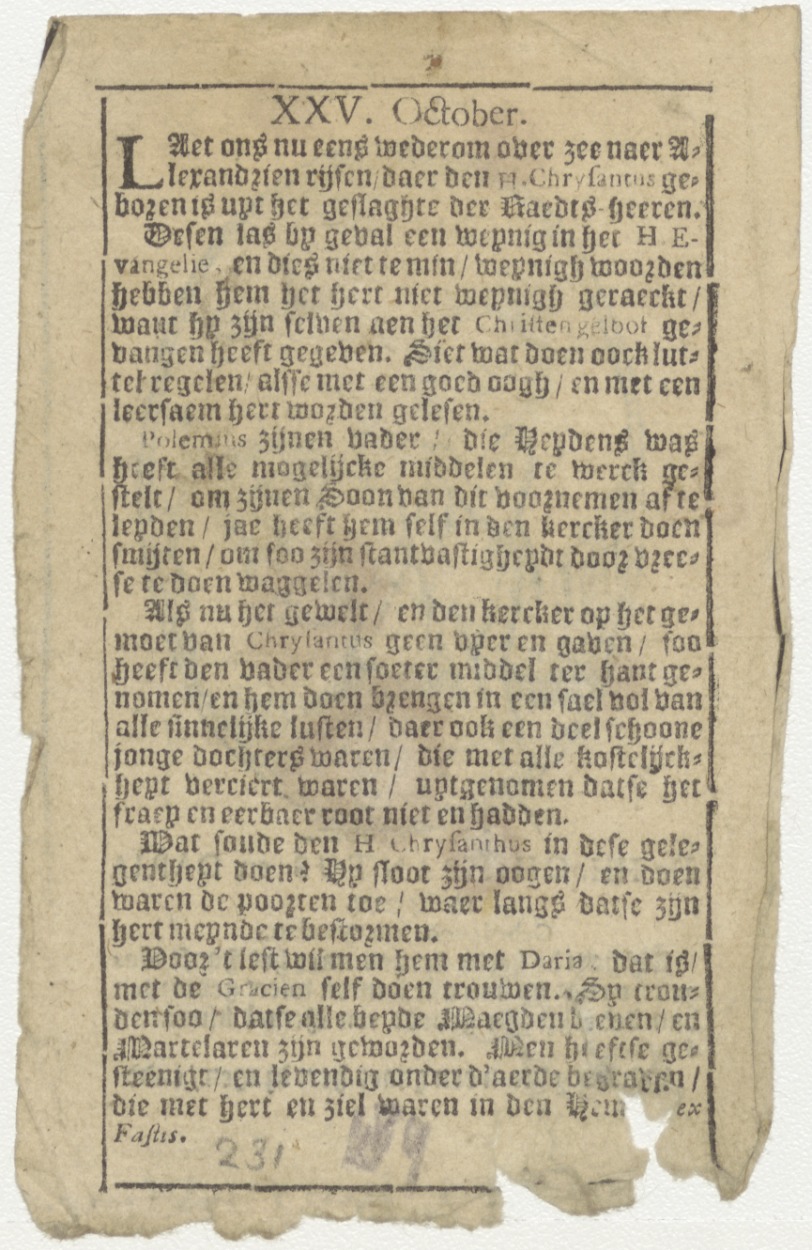 XXV. October.
LAet ons nu eens wederom over zee naer A-
lexandrien rijsen/ daer den H. Chrysantus ge-
boren is uyt het geslaghte der Raedts-heeren.
Desen las by geval een weynig in het H E-
vangelie, en dies niet te min/ weynigh woorden
hebben hem het hert niet weynigh geraeckt/
want hy zijn selven aen het Christen geloof ge-
vangen heeft gegeven. Siet wat doen oock lut-
tel regelen/ alsse met een goed oogh/ en met een
leersaem hert worden gelesen.
Polemius zijnen vader/ die Heydens was
heeft alle mogelijcke middelen te werck ge-
stelt/ om zijnen Soon van dit voornemen af te
leyden/ jae heeft hem self in den kercker doen
smijten/ om soo zijn stantvastigheydt door vree-
se te doen waggelen.
Als nu het gewelt/ en den kercker op het ge-
moet van Chrysantus geen vyer en gaven/ soo
heeft den vader een soeter middel ter hant ge-
nomen/ en hem doen brengen in een sael vol van
alle sinnelijke lusten/ daer ook een deel schoone
jonge dochters waren/ die met alle kostelijck-
heyt verciert waren/ uytgenomen datse het
fraey en eerbaer root niet en hadden.
Wat soude den H Chrysanthus in dese gele-
gentheyt doen? Hy sloot zijn oogen/ en doen
waren de poorten toe/ waer langs datse zijn
hert meynde te bestormen.
Voor 't lest wil men hem met Daria, dat is/
met de Gracien self doen trouwen. Sy trou-
den soo/ datse alle beyde Maegden b even/ en
Martelaren zijn geworden. Men heeftse ge-
steenigt/ en levendig onder d'aerde begraven/
die met hert en ziel waren in den Hem ex
Fastis.
231